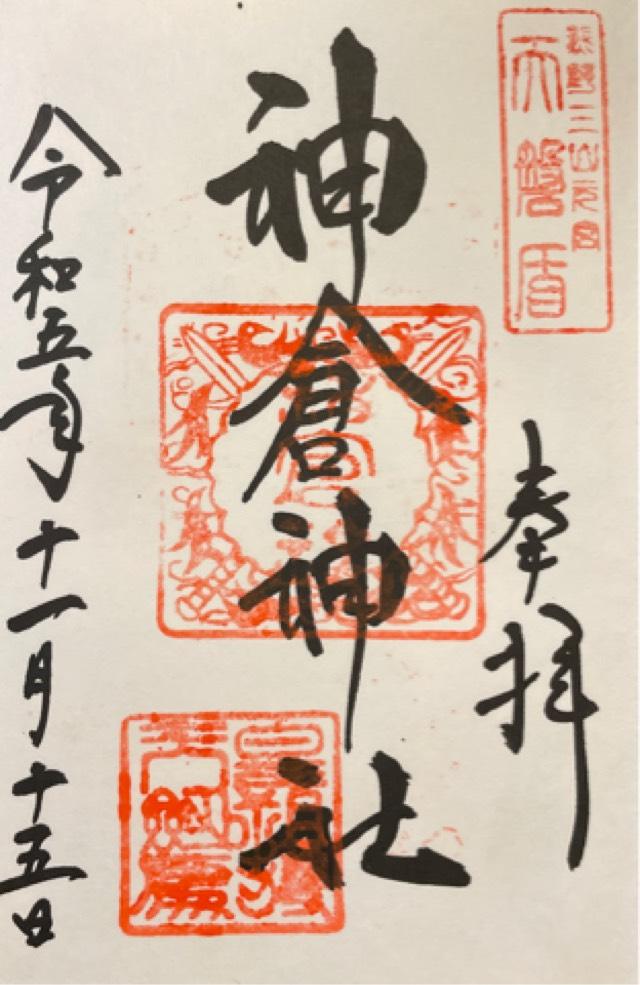 熊野三山元宮
天磐盾
奉拝
神倉神社
令和五年十一月十五日